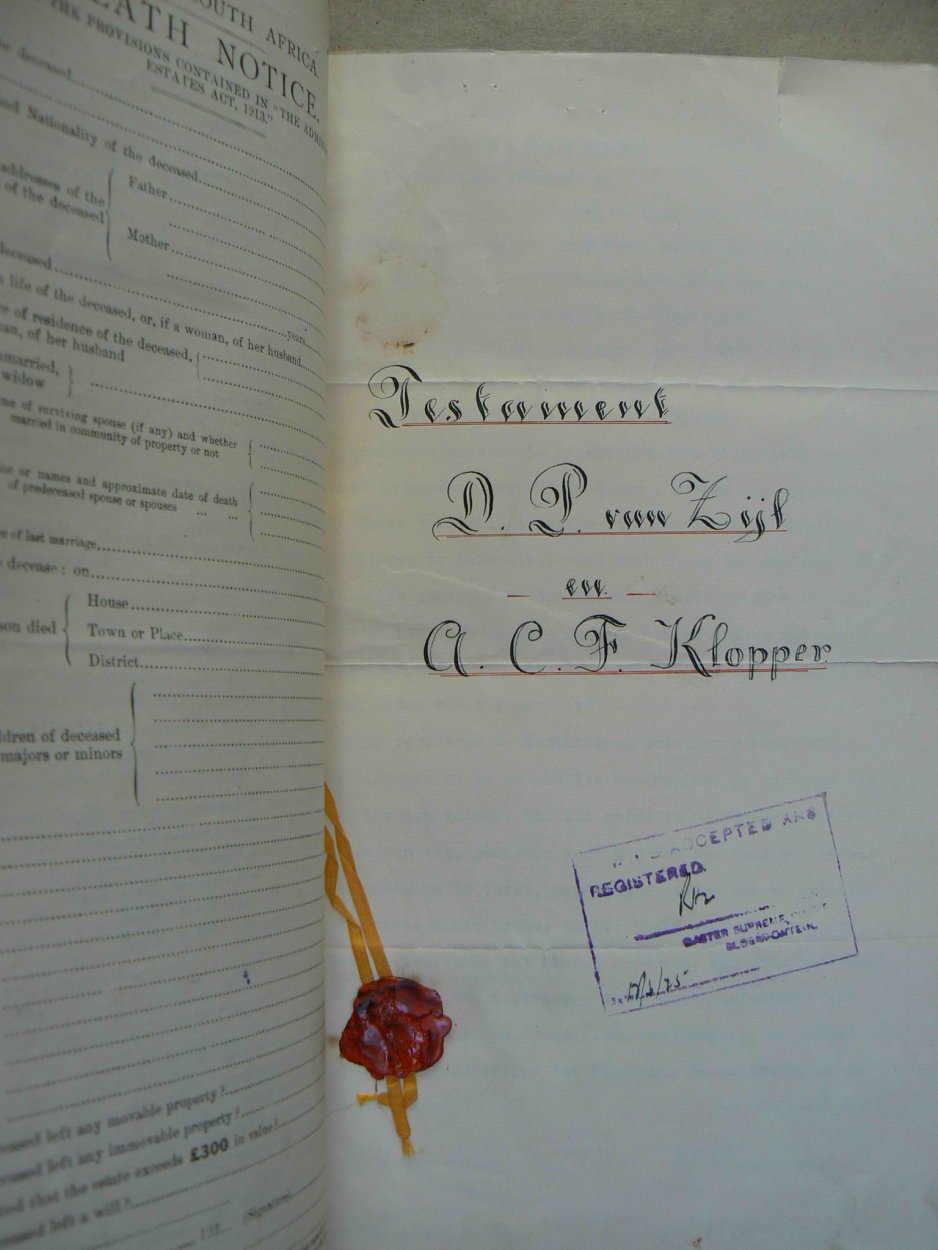 SOUTH AFRICA.
DEATH NOTICE.
THE PROVISIONS CONTAINED IN "THE
ESTATES ACT, 1913."
deceased
and Nationality of the deceased
addresses of the
of the deceased
Father
Mother
deceased
life of the deceased, or, if a woman, of her husband
years
of residence of the deceased,
of her husband
widow
of surviving spouse (if any) and whether
married in community of property or not
or names and approximate date of death
of predeceased spouse or spouses ... ...
of last marriage
decease : on
died
House
Town or Place
District
of deceased
majors or minors
left any movable property?
left any immovable property?
that the estate exceeds £300 in value?
left a will?
192 (Signature)
Testament
D. P. van Zijl
— en —
A. C. F. Klopper
ACCEPTED AND
REGISTERED.
SUPREME